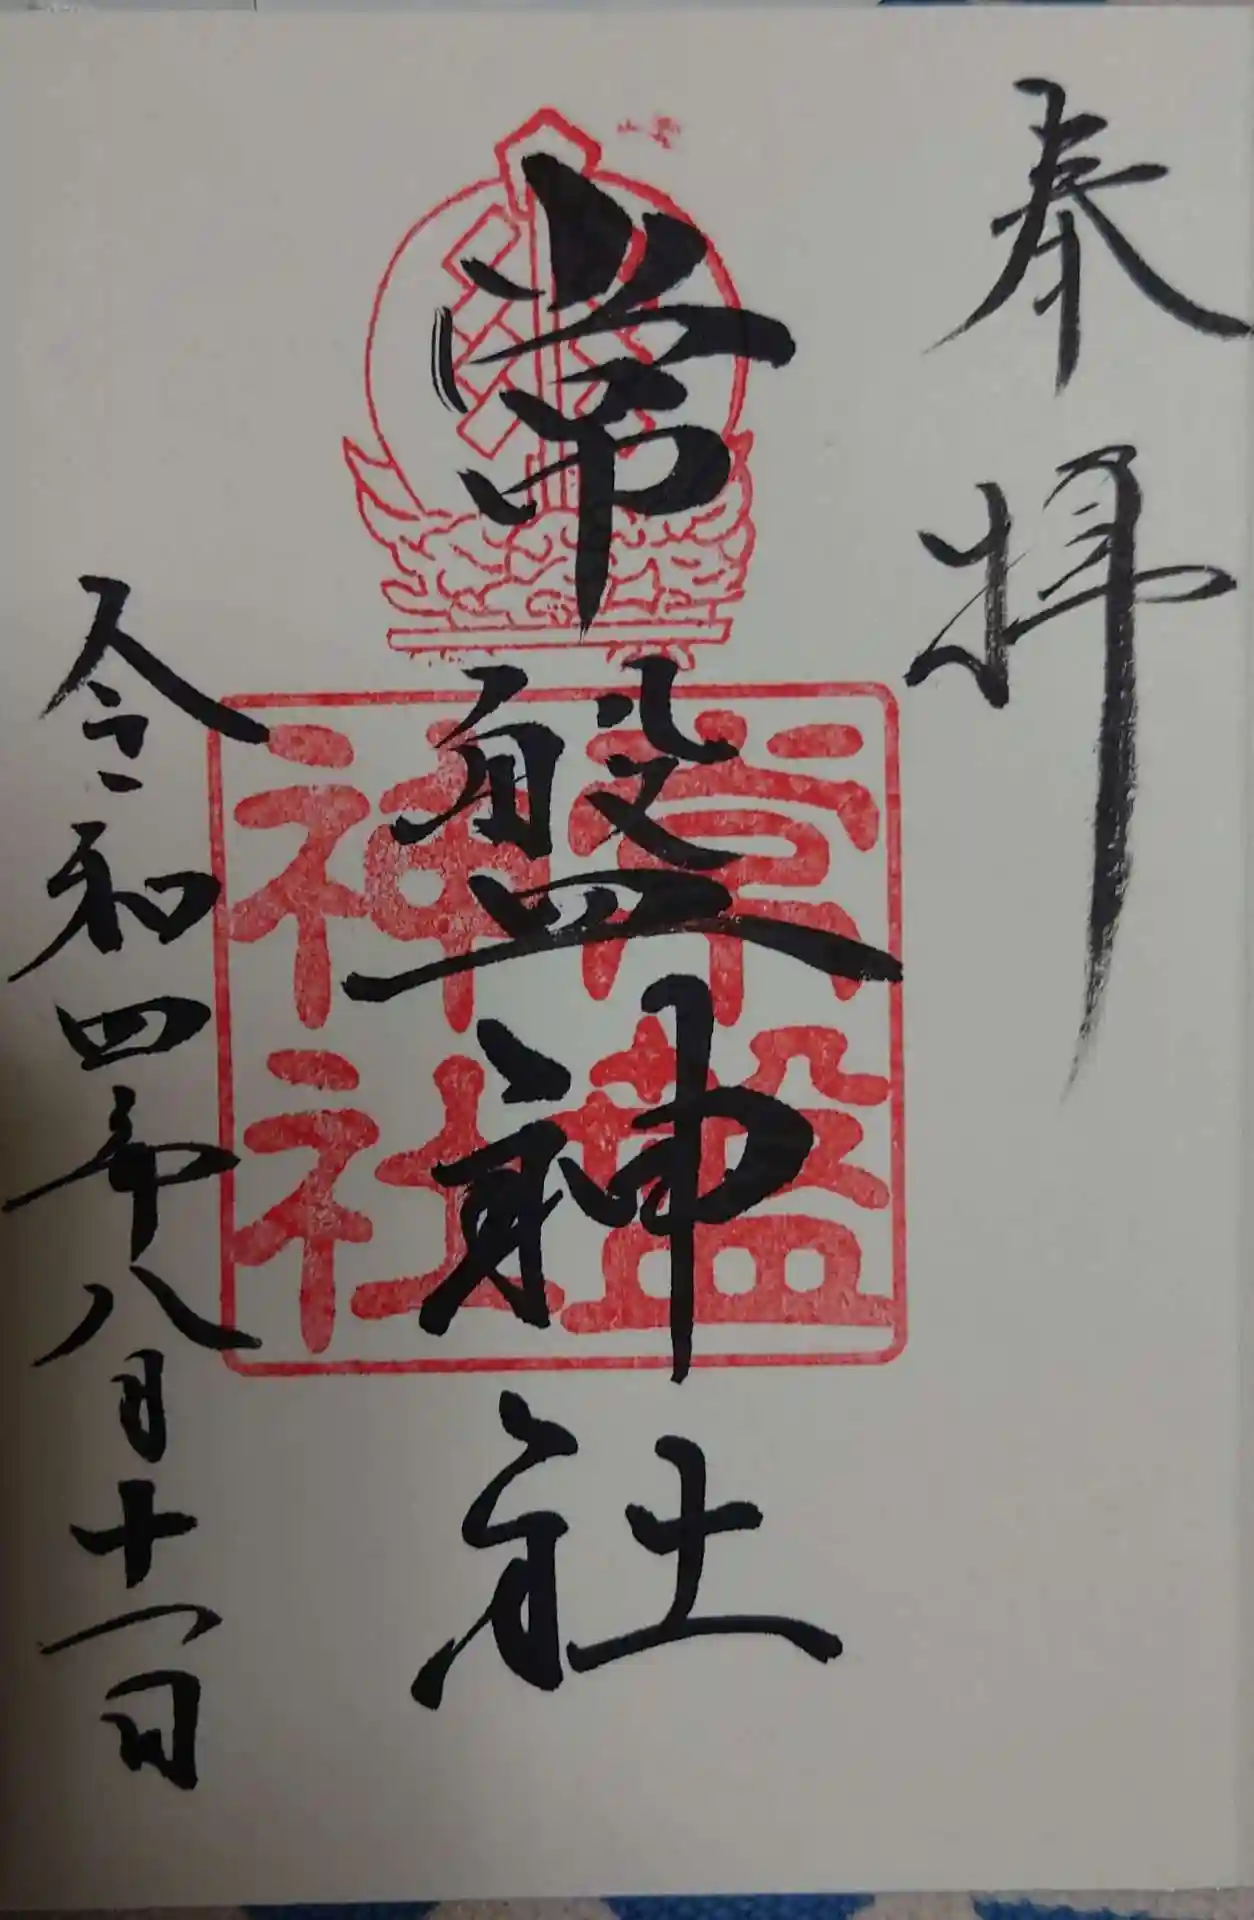 奉拝
常盤神社
常盤
神社
令和四年八月十一日